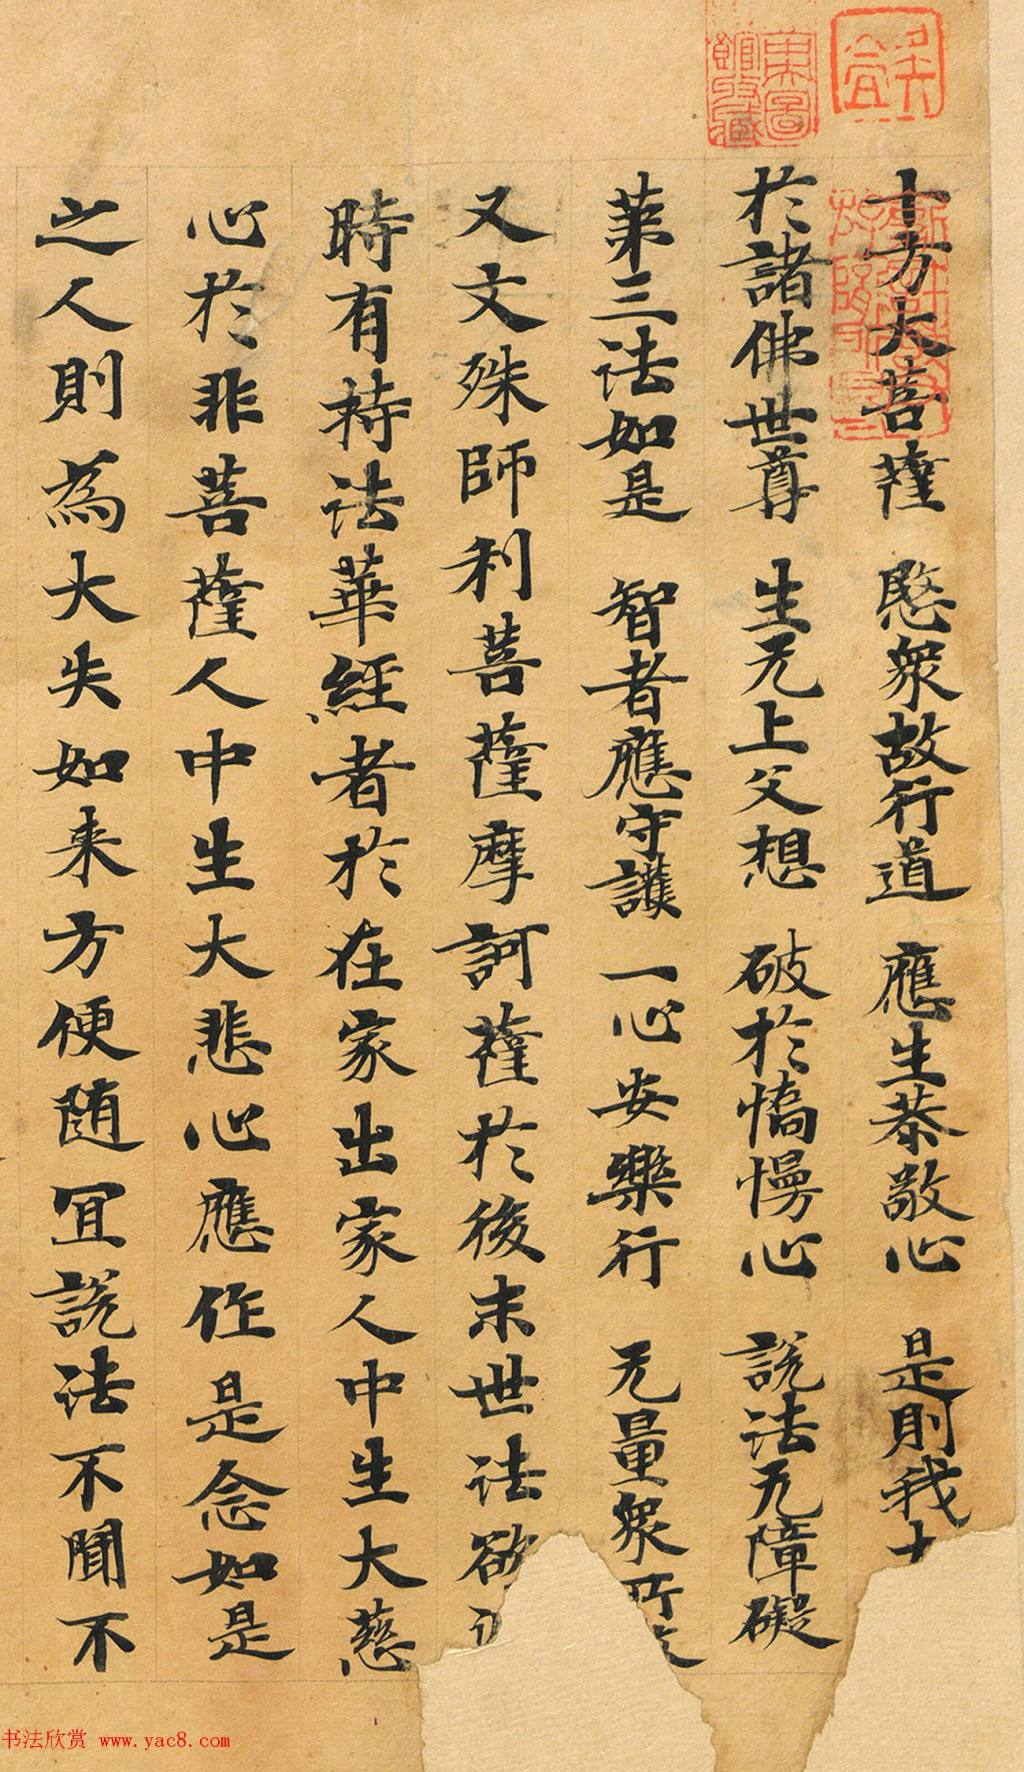 十方大菩薩 愍衆故行道 應生恭敬心 是則我
於諸佛世尊 生无上父想 破於憍慢心 說法无障礙
苐三法如是 智者應守護 一心安樂行 无量衆所
又文殊師利菩薩摩訶薩於後末世法欲
時有持法華經者於在家出家人中生大慈
心於非菩薩人中生大悲心應作是念如是
之人則為大失如来方便随冝說法不聞不
书法欣赏 www.yac8.com